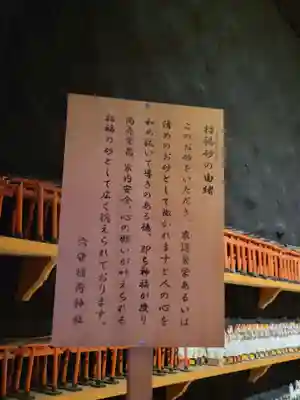 招福砂の由緒
このお砂をいただき、敷設家宅あるいは
清めのお砂として撒かれますと人の心を
和め招いて導きのある様、即ち神福が授り
商売繁昌、家内安全、心の願いが叶えられる
招福の砂として広く称えられております。
穴守稲荷神社